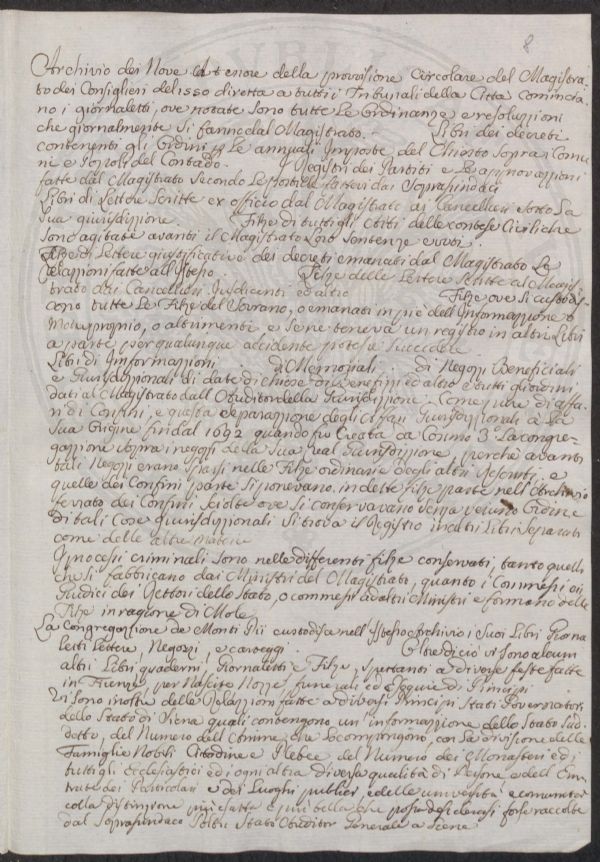 8
Archivio dei Nove A tenore della provisione Circolare del Magistra
to dei Consiglieri del 1550 diretta a tutti i Tribunali della Città comincia
no i giornaletti, ove notate sono tutte Le Ordinanze e resoluzioni
che giornalmente si fanno dal Magistrato. Libri dei decreti
contenenti gli Ordini Le annuali Imposte del Chiesto sopra i Comu
ni e Popoli del Contado. Registri dei Partiti e Le approvazioni
fatte dal Magistrato secondo Le dai Soprasindaci
Libri di Lettere Scritte ex officio dal Magistrato ai Cancellieri sotto La
sua giurisdizione. Filze di tutti gli Atti delle contese Civili che
sono agitate avanti il Magistrato Loro Sentenze
Filze di Lettere giustificative dei decreti emanati dal Magistrato Le
relazzioni fatte all'Istesso. Filze delle Lettere scritte al Magis
trato dai Cancellieri Jusdicenti ed altri Filze ove si custodis
cono tutte Le Filze del Sovrano, o emanati in piè dell'Informazione o
Motuproprio, o altrimenti e se ne teneva un registro in altri Libri
a parte per qualunque accidente potesse succedere
Libri di Informazioni di Memoriali di Negozi Beneficiali
e Giurisdizionali di date di chiese o benefizi ed altro e tutti gli ordini
dati al Magistrato dall'Auditor della Giurisdizione. Come pure di affa
ri di Confini, e questa separazzione degli affari Giurisdizionali à La
sua Origine fin dal 1692 quando fu Creata da Cosimo 3º La congre-
gazzione sopra i negozi della sua Real Giurisdizione, perché avanti
tali Negozi erano sparsi nelle Filze ordinarie degli altri rescritti, e
quelle dei Confini parte si ponevano in dette filze parte nell'Archivio
ferrato dei Confini, sciolte ove si conservavano senza veruno Ordine
Di tali Cose giurisdizionali si trova il Registro in altri Libri separati
come delle altre materie
I processi criminali sono nelle differenti filze conservati, tanto quelli
che si fabbricano dai Ministri del Magistrato, quanto i Commessi ai
Giudici dei Rettori dello Stato, o commessi ad altri Ministri e formano delle
Filze in ragione di Mole
La Congregazzione de Monti Pii custodisce nell'Istesso Archivio i suoi Libri Giorna
letti Lettere, Negozzi e carteggi. Oltrediciò vi sono alcuni
altri Libri quaderni, Giornaletti e Filze, spettanti a diverse feste fatte
in Firenze per Nascite Nozze, funerali ed esequie di Principi
Vi sono inoltre delle Relazzioni fatte a diversi Principi Stati Governatori
dello Stato di Siena quali contengono un informazzione dello Stato sud
detto, del Numero dell'Anime che Lo compongono, con La divisione delle
Famiglie Nobili Cittadine e Plebee, del Numero dei Monasteri e di
tutti gli Ecclesiastici e di ogni altra diversa qualità di Persone e dell'En
trate dei Particolari e dei Luoghi publici e delle università e comunità
colla distinzione più esatta e più bella che possa desiderarsi forse raccolte
dal Soprasindaco Stato Auditor Generale a Siena